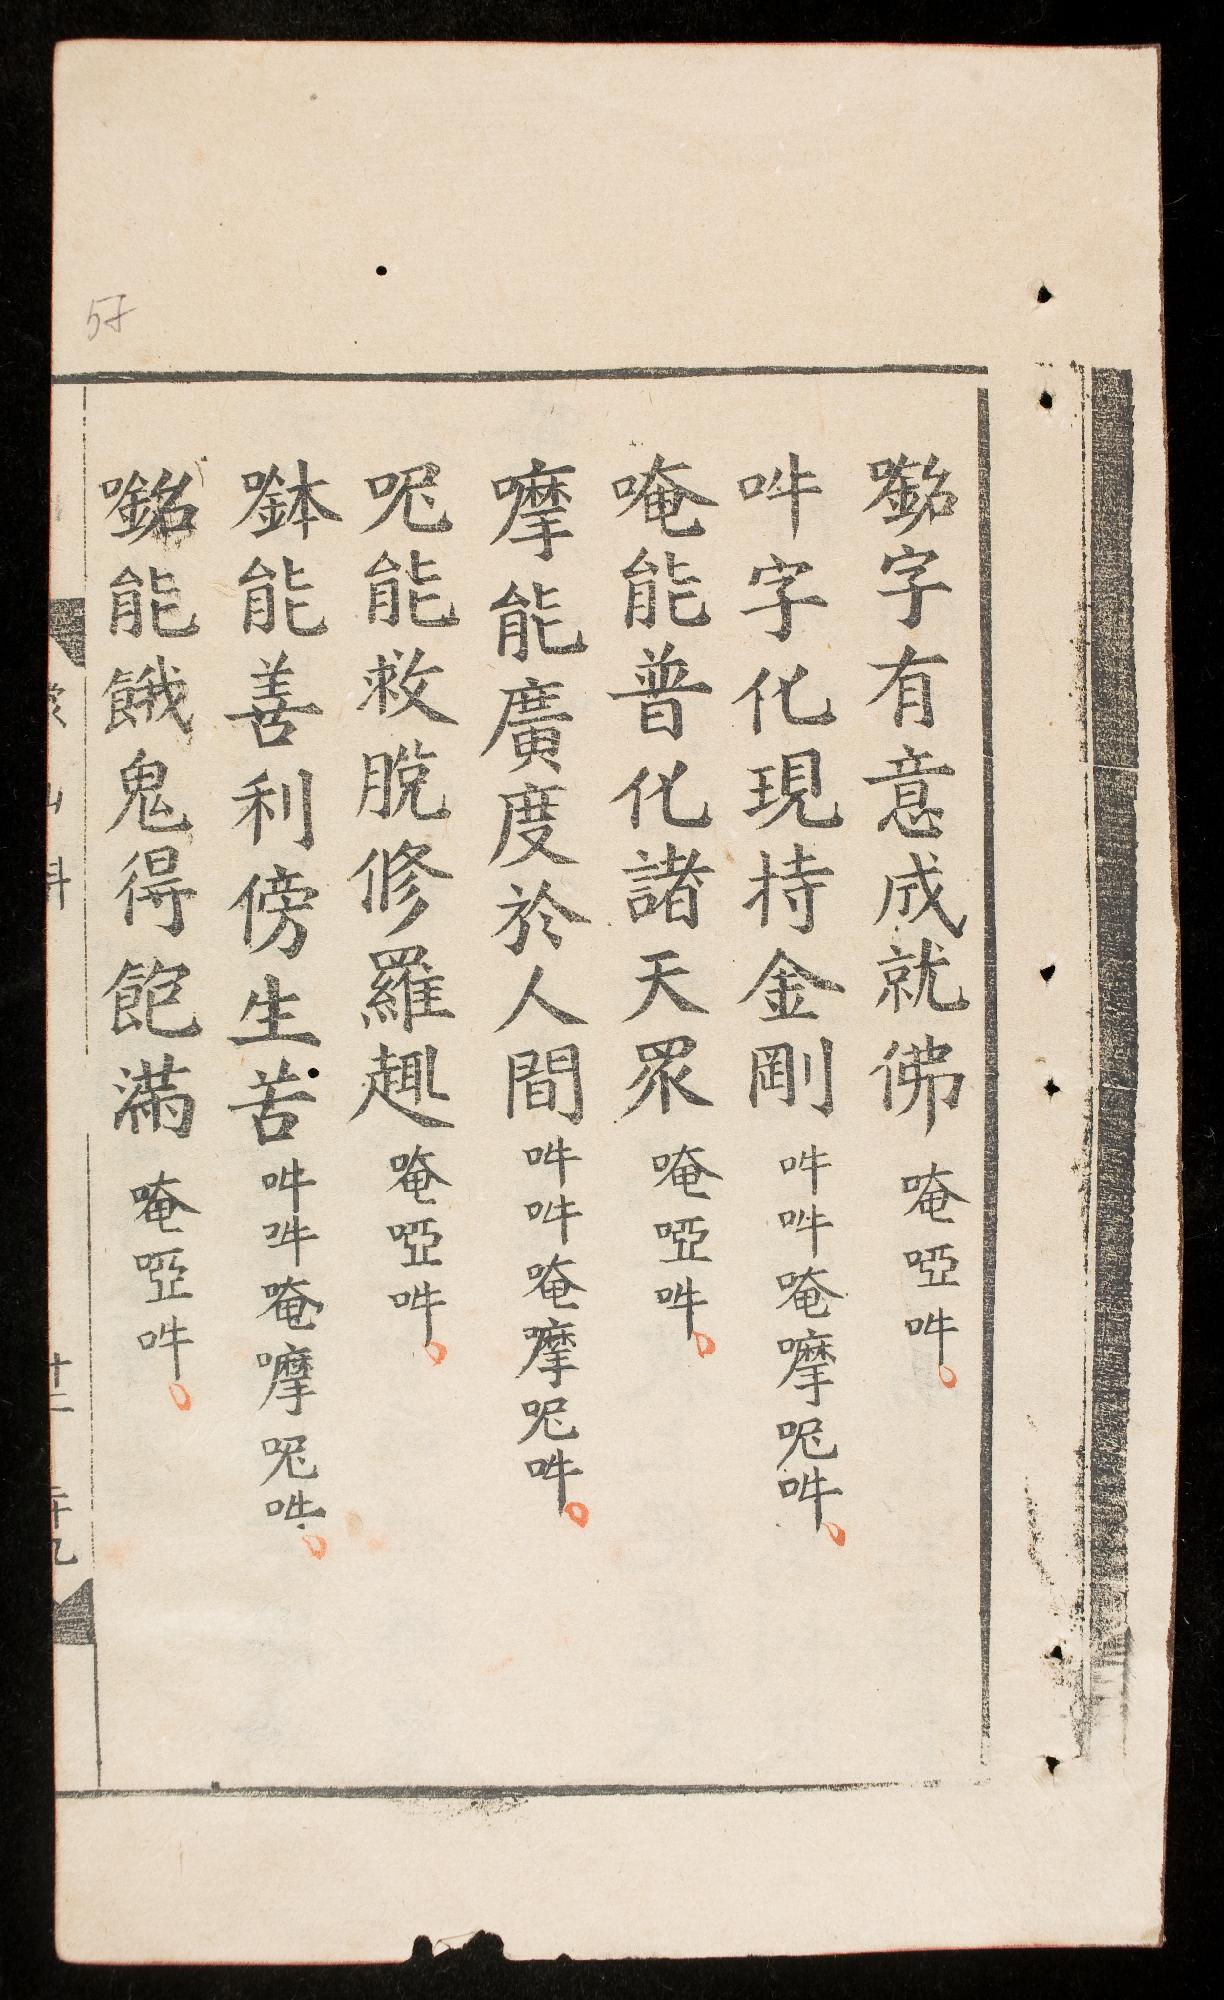 𡃯字有意成就佛 唵啞吽
吽字化現持金剛 吽吽唵嚤呢吽
唵能普化諸天眾 唵啞吽
嚤能廣度於人間 吽吽唵嚤呢吽
呢能救脫修羅趣 唵啞吽
𠸸能善利傍生苦 吽吽唵嚤呢吽
𡃯能餓鬼得飽滿 唵啞吽
57